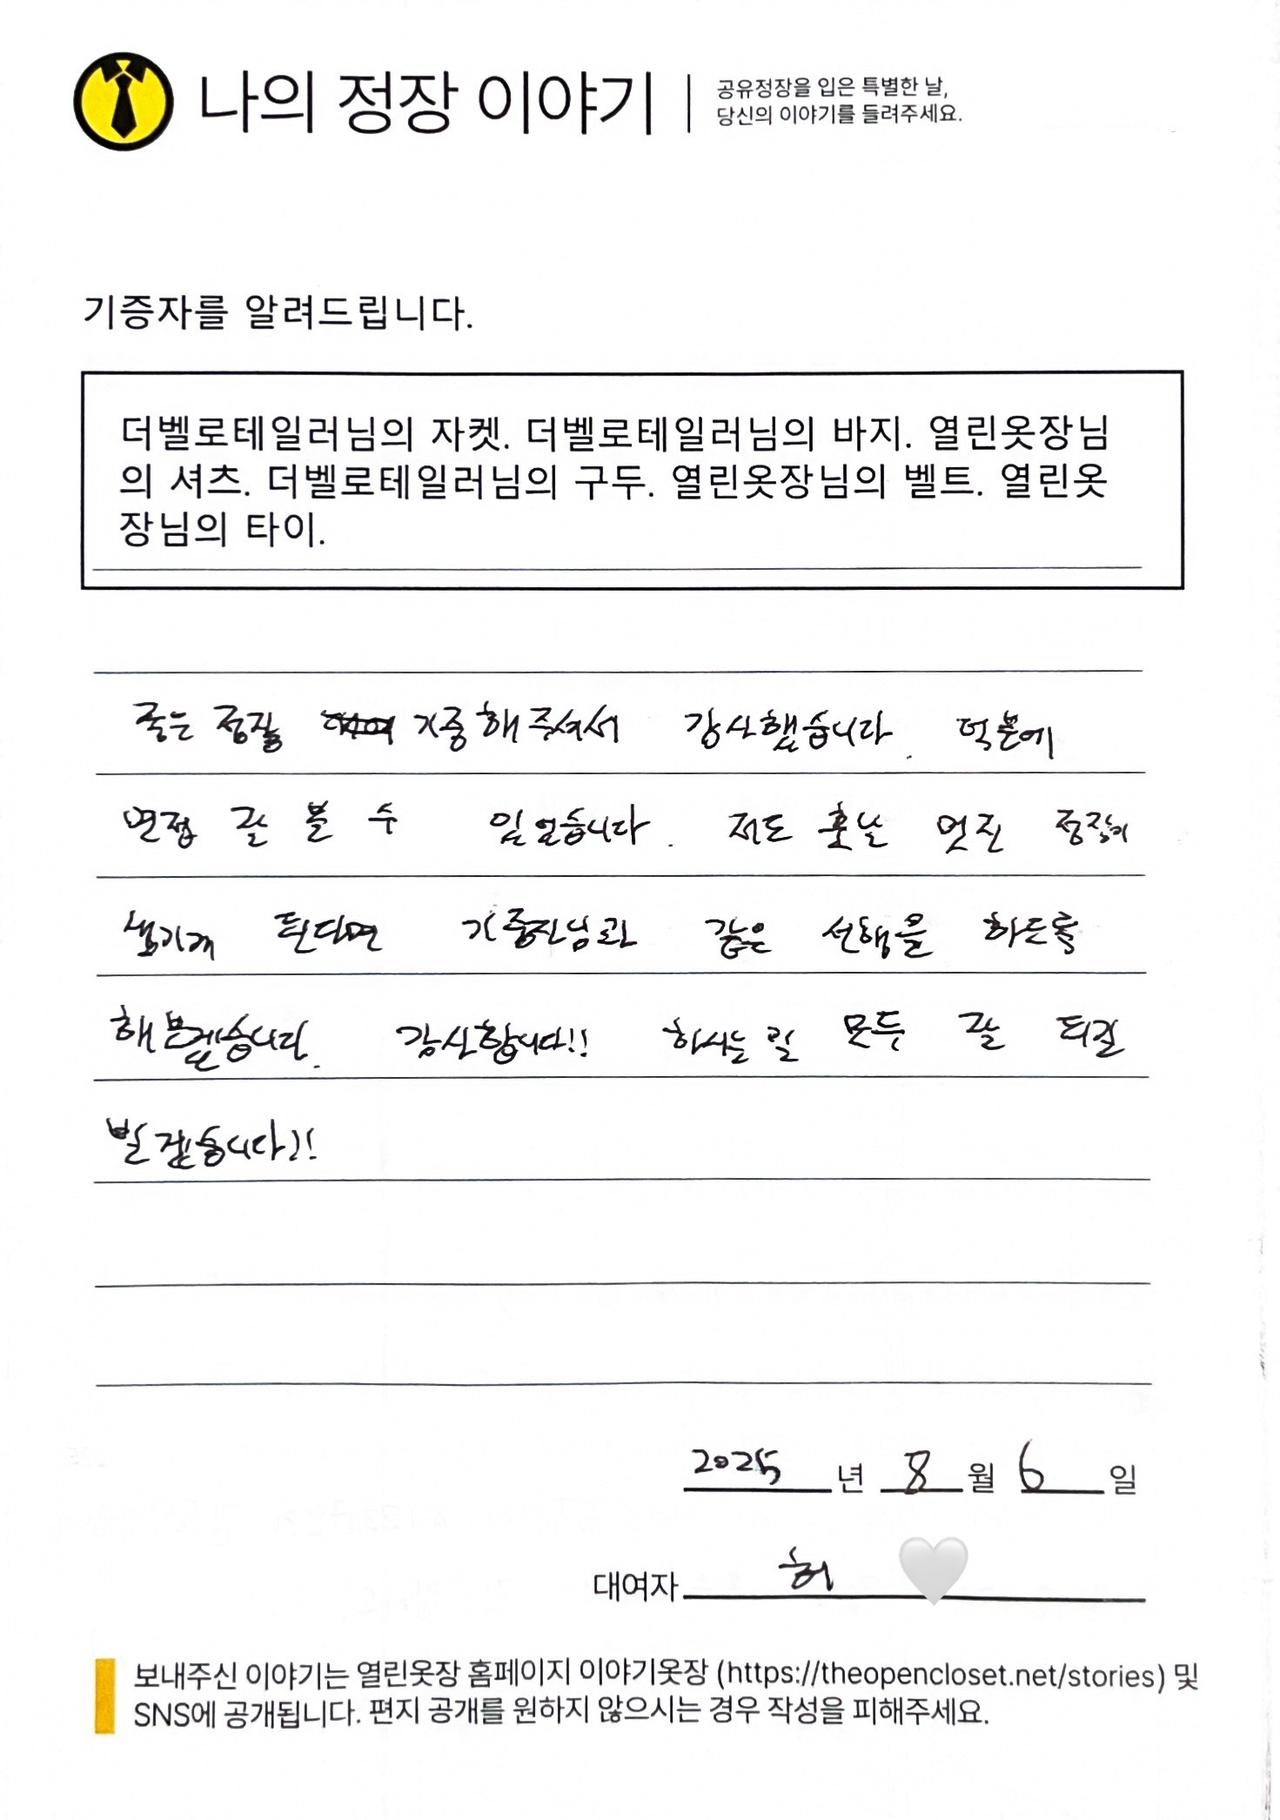 나의 정장 이야기
공유정장을 입은 특별한 날,
당신의 이야기를 들려주세요.
기증자를 알려드립니다.
더벨로테일러님의 자켓. 더벨로테일러님의 바지. 열린옷장님
의 셔츠. 더벨로테일러님의 구두. 열린옷장님의 벨트. 열린옷
장님의 타이.
좋은 정장 기증해주셔서 감사했습니다. 덕분에
면접 잘 볼 수 있었습니다. 저도 훗날 멋진 정장이
생기게 된다면 기증자님과 같은 선행을 하도록
해보겠습니다. 감사합니다!! 하시는 일 모두 잘 되길
빌겠습니다!!
2025 년 8 월 6 일
대여자 허
보내주신 이야기는 열린옷장 홈페이지 이야기옷장 (https://theopencloset.net/stories) 및
SNS에 공개됩니다. 편지 공개를 원하지 않으시는 경우 작성을 피해주세요.